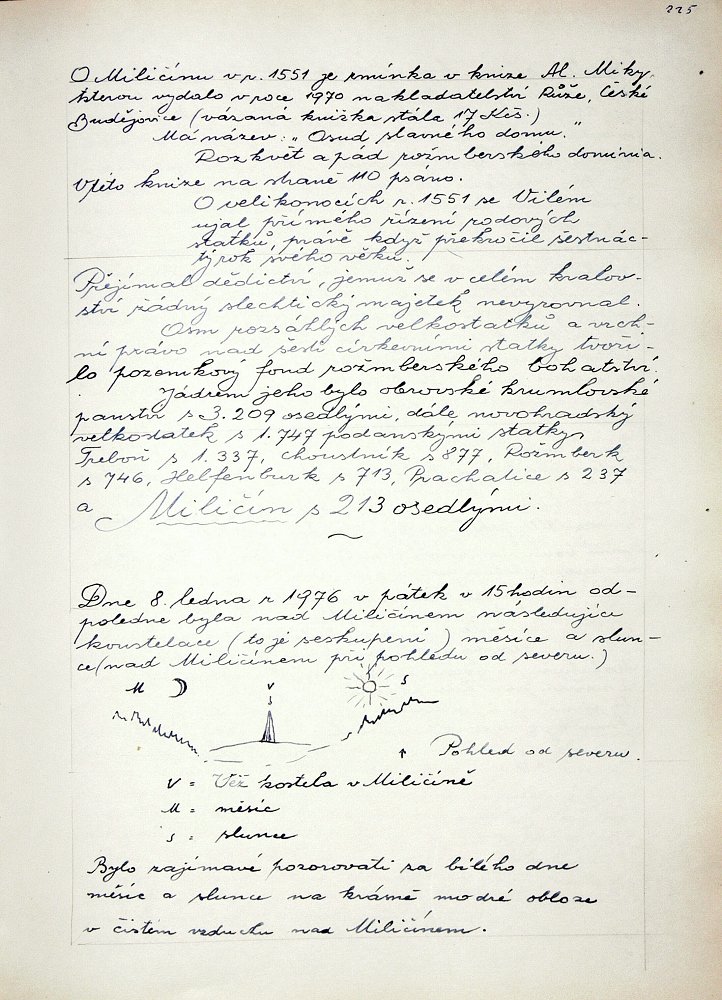 225
O Miličínu v r. 1551 je zmínka v knize Al. Miky,
kterou vydalo v roce 1970 nakladatelství Růže, České
Budějovice (vázaná knížka stála 17 Kčs.)
Má název: „Osud slavného domu."
Rozkvět a pád rožmberského dominia.
V této knize na straně 110 psáno.
O velikonocích r. 1551 se Vilém
ujal přímého řízení rodových
statků, právě když překročil šestnác-
tý rok svého věku.
Přejímal dědictví, jemuž se v celém králov-
ství žádný šlechtický majetek nevyrovnal.
Osm rozsáhlých velkostatků a vrch-
ní právo nad šesti církevními statky tvoři-
lo pozemkový fond rožmberského bohatství.
Jádrem jeho bylo obrovské krumlovské
panství s 3.209 osedlými, dále novohradský
velkostatek s 1.747 poddanskými statky,
Třeboň s 1.337, Choustník s 877, Rožmberk
s 746, Helfenburk s 713, Prachatice s 237
a Miličín s 213 osedlými.
Dne 8. ledna r 1976 v pátek v 15 hodin od-
poledne byla nad Miličínem následující
konstelace (to je seskupení) měsíce a slun-
ce (nad Miličínem při pohledu od severu.)
M V S
↑ Pohled od severu.
V = Věž kostela v Miličíně
M = měsíc
S = slunce
Bylo zajímavé pozorovati za bílého dne
měsíc a slunce na krásně modré obloze
v čistém vzduchu nad Miličínem.